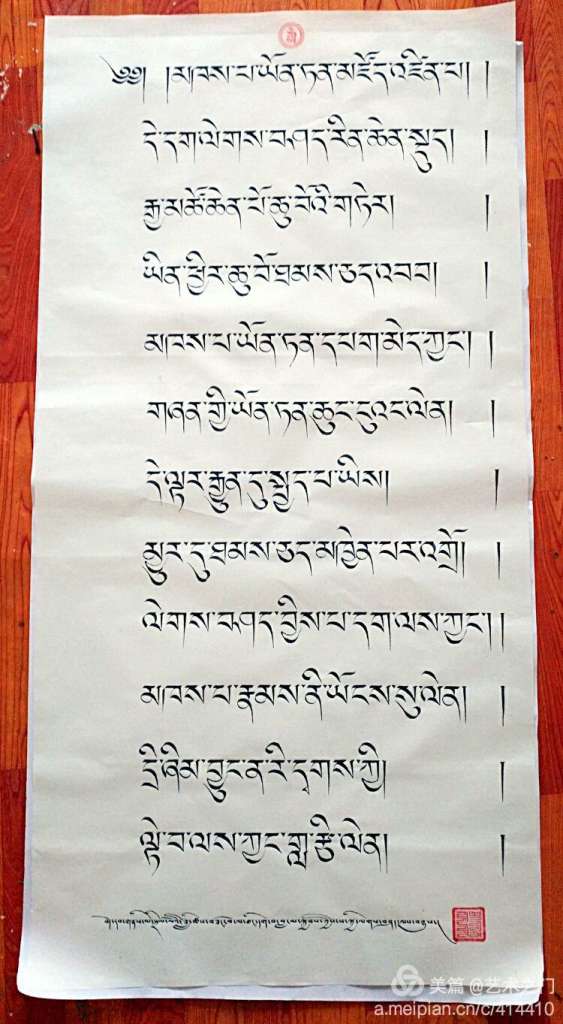 ༄༅། །མཁས་པ་ཡོན་ཏན་མཛོད་འཛིན་པ། །
དེ་དག་ལེགས་བཤད་རིན་ཆེན་སྡུད། །
རྒྱ་མཚོ་ཆེན་པོ་ཆུ་བོའི་གཏེར། །
ཡིན་ཕྱིར་ཆུ་བོ་ཐམས་ཅད་འབབ། །
མཁས་པ་ཡོན་ཏན་དཔག་མེད་ཀྱང་། །
གཞན་གྱི་ཡོན་ཏན་ཆུང་ངུའང་ལེན། །
དེ་ལྟར་རྒྱུན་དུ་སྤྱད་པ་ཡིས། །
མྱུར་དུ་ཐམས་ཅད་མཁྱེན་པར་འགྲོ། །
ལེགས་བཤད་བྱིས་པ་དག་ལས་ཀྱང་། །
མཁས་པ་རྣམས་ནི་ཡོངས་སུ་ལེན། །
དྲི་ཞིམ་བྱུང་ན་རི་དྭགས་ཀྱི། །
ལྟེ་བ་ལས་ཀྱང་གླ་རྩི་ལེན། །
美篇 @艺术之门
a.meipian.cn/c/414410